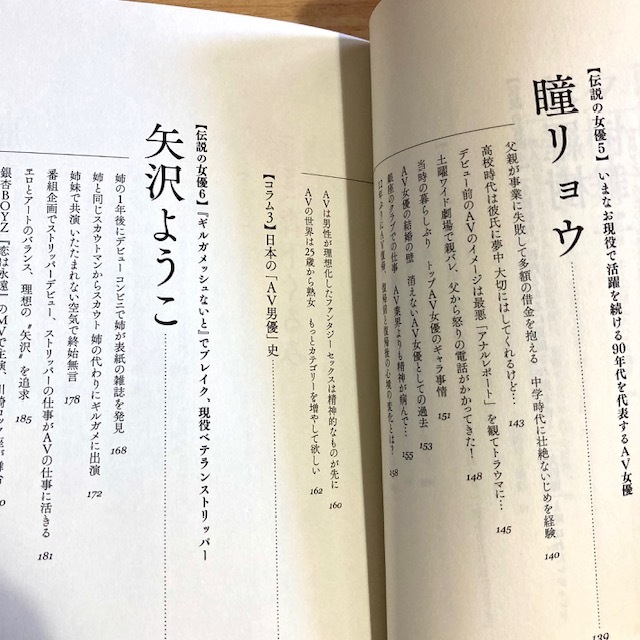 【伝説の女優5】いまなお現役で活躍を続ける90年代を代表するAV女優
瞳リョウ
139
父親が事業に失敗して多額の借金を抱える 中学時代に壮絶ないじめを経験 140
高校時代は彼氏に夢中 大切にはしてくれるけど… 143
デビュー前のAVのイメージは最悪「アナルレポート」を観てトラウマに… 145
土曜ワイド劇場で親バレ、父から怒りの電話がかかってきた! 148
当時の暮らしぶり トップAV女優のギャラ事情 151
AV女優の結婚の壁 消えないAV女優としての過去 153
銀座のクラブでの仕事 AV業界よりも精神が病んで… 155
【コラム3】日本の「AV男優」史
AVは男性が理想化したファンタジー セックスは精神的なものが先に 160
AVの世界は25歳から熟女 もっとカテゴリーを増やして欲しい 162
【伝説の女優6】『ギルガメッシュないと』でブレイク、現役ベテランストリッパー
矢沢ようこ
姉の1年後にデビュー コンビニで姉が表紙の雑誌を発見 168
姉と同じスカウトマンからスカウト 姉の代わりにギルガメに出演 172
姉妹で共演 いたたまれない空気で終始無言 178
番組企画でストリッパーデビュー、ストリッパーの仕事がAVの仕事に活きる 181
エロとアートのバランス、理想の〝矢沢〟を追求 185
銀杏BOYZ「恋は永遠」のMVで主演、川崎ロック座が舞台